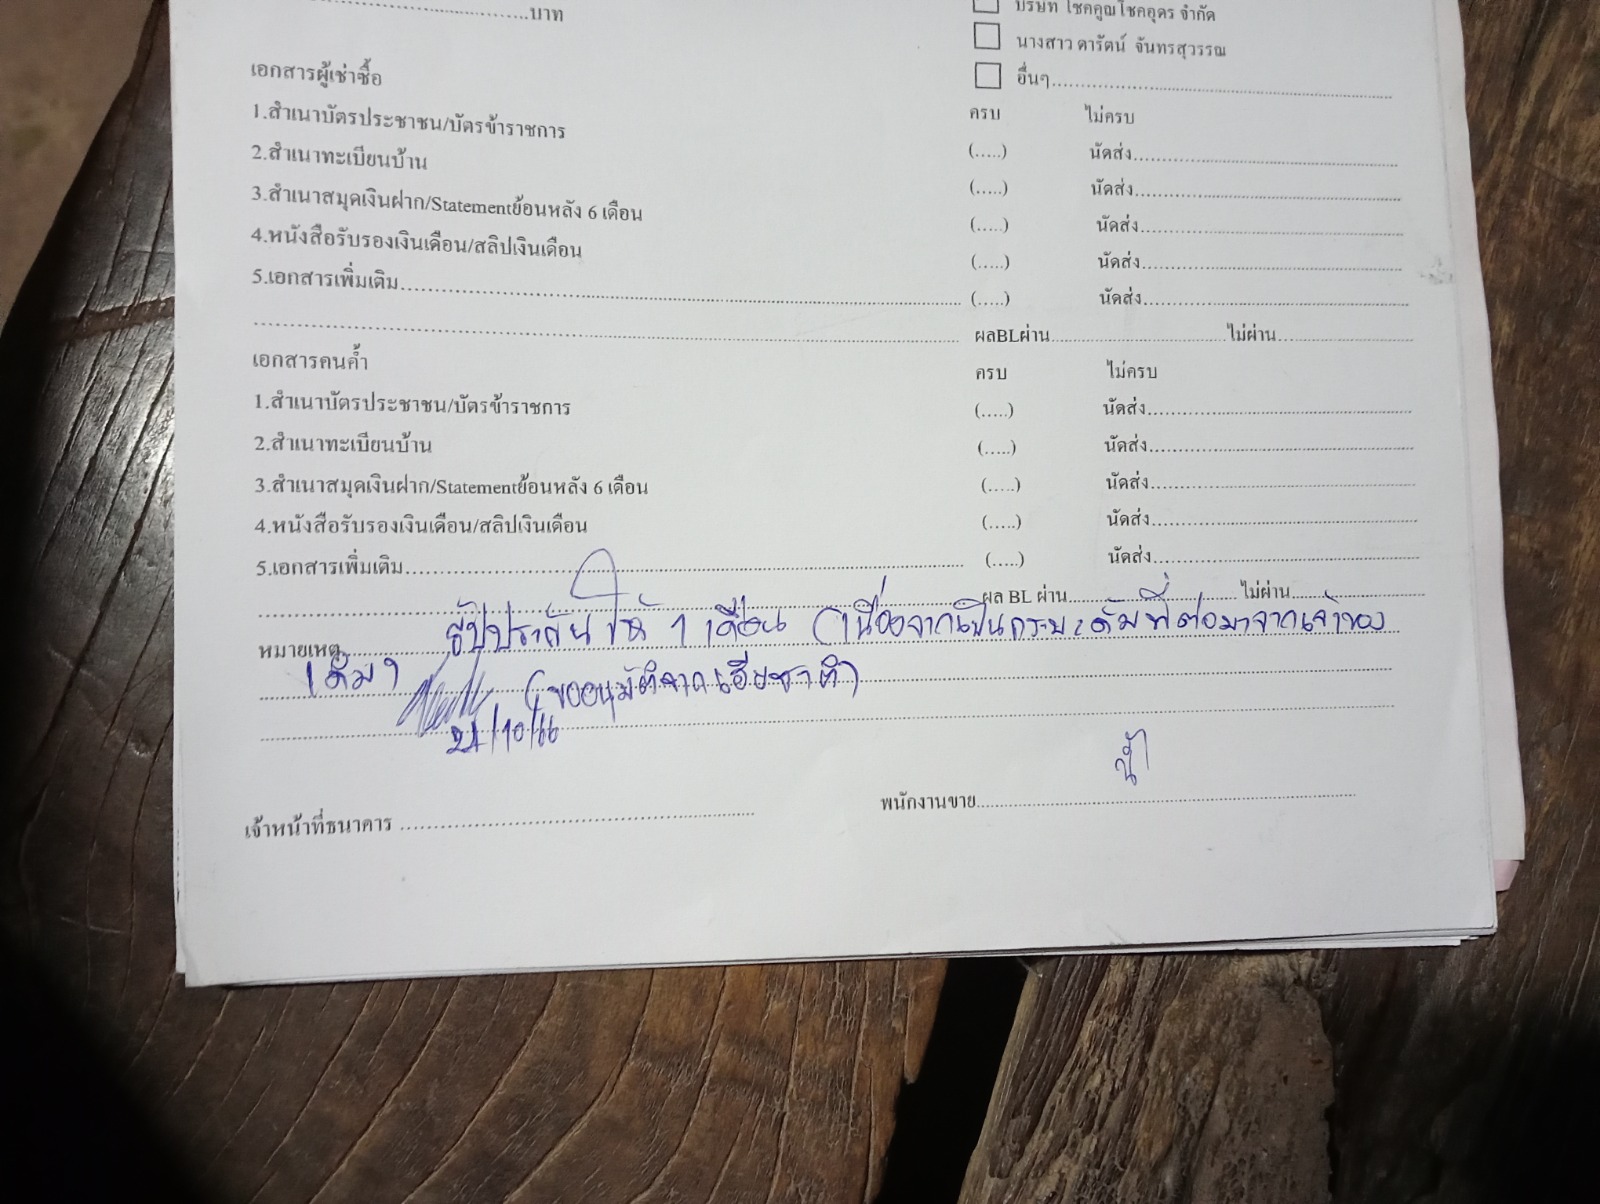 ............บาท
บริษัท โชคคูณโชคอุดร จำกัด
นางสาว ดารัตน์ จันทรสุวรรณ
อื่นๆ............
เอกสารผู้เช่าซื้อ
ครบ ไม่ครบ
1.สำเนาบัตรประชาชน/บัตรข้าราชการ (.....) นัดส่ง............
2.สำเนาทะเบียนบ้าน (.....) นัดส่ง............
3.สำเนาสมุดเงินฝาก/Statementย้อนหลัง 6 เดือน (.....) นัดส่ง............
4.หนังสือรับรองเงินเดือน/สลิปเงินเดือน (.....) นัดส่ง............
5.เอกสารเพิ่มเติม............ (.....) นัดส่ง............
............ ผลBLผ่าน............ไม่ผ่าน............
เอกสารคนค้ำ ครบ ไม่ครบ
1.สำเนาบัตรประชาชน/บัตรข้าราชการ (.....) นัดส่ง............
2.สำเนาทะเบียนบ้าน (.....) นัดส่ง............
3.สำเนาสมุดเงินฝาก/Statementย้อนหลัง 6 เดือน (.....) นัดส่ง............
4.หนังสือรับรองเงินเดือน/สลิปเงินเดือน (.....) นัดส่ง............
5.เอกสารเพิ่มเติม............ (.....) นัดส่ง............
............ ผล BL ผ่าน............ไม่ผ่าน............
หมายเหตุ ประกันให้ 1 เดือน (เนื่องจากเป็นกระบะดัมพ์ที่ต่อมาจากเจ้าของ
เดิม) (ขออนุมัติจากเฮียชาติ)
21/10/66
น้ำ
เจ้าหน้าที่ธนาคาร ............ พนักงานขาย............